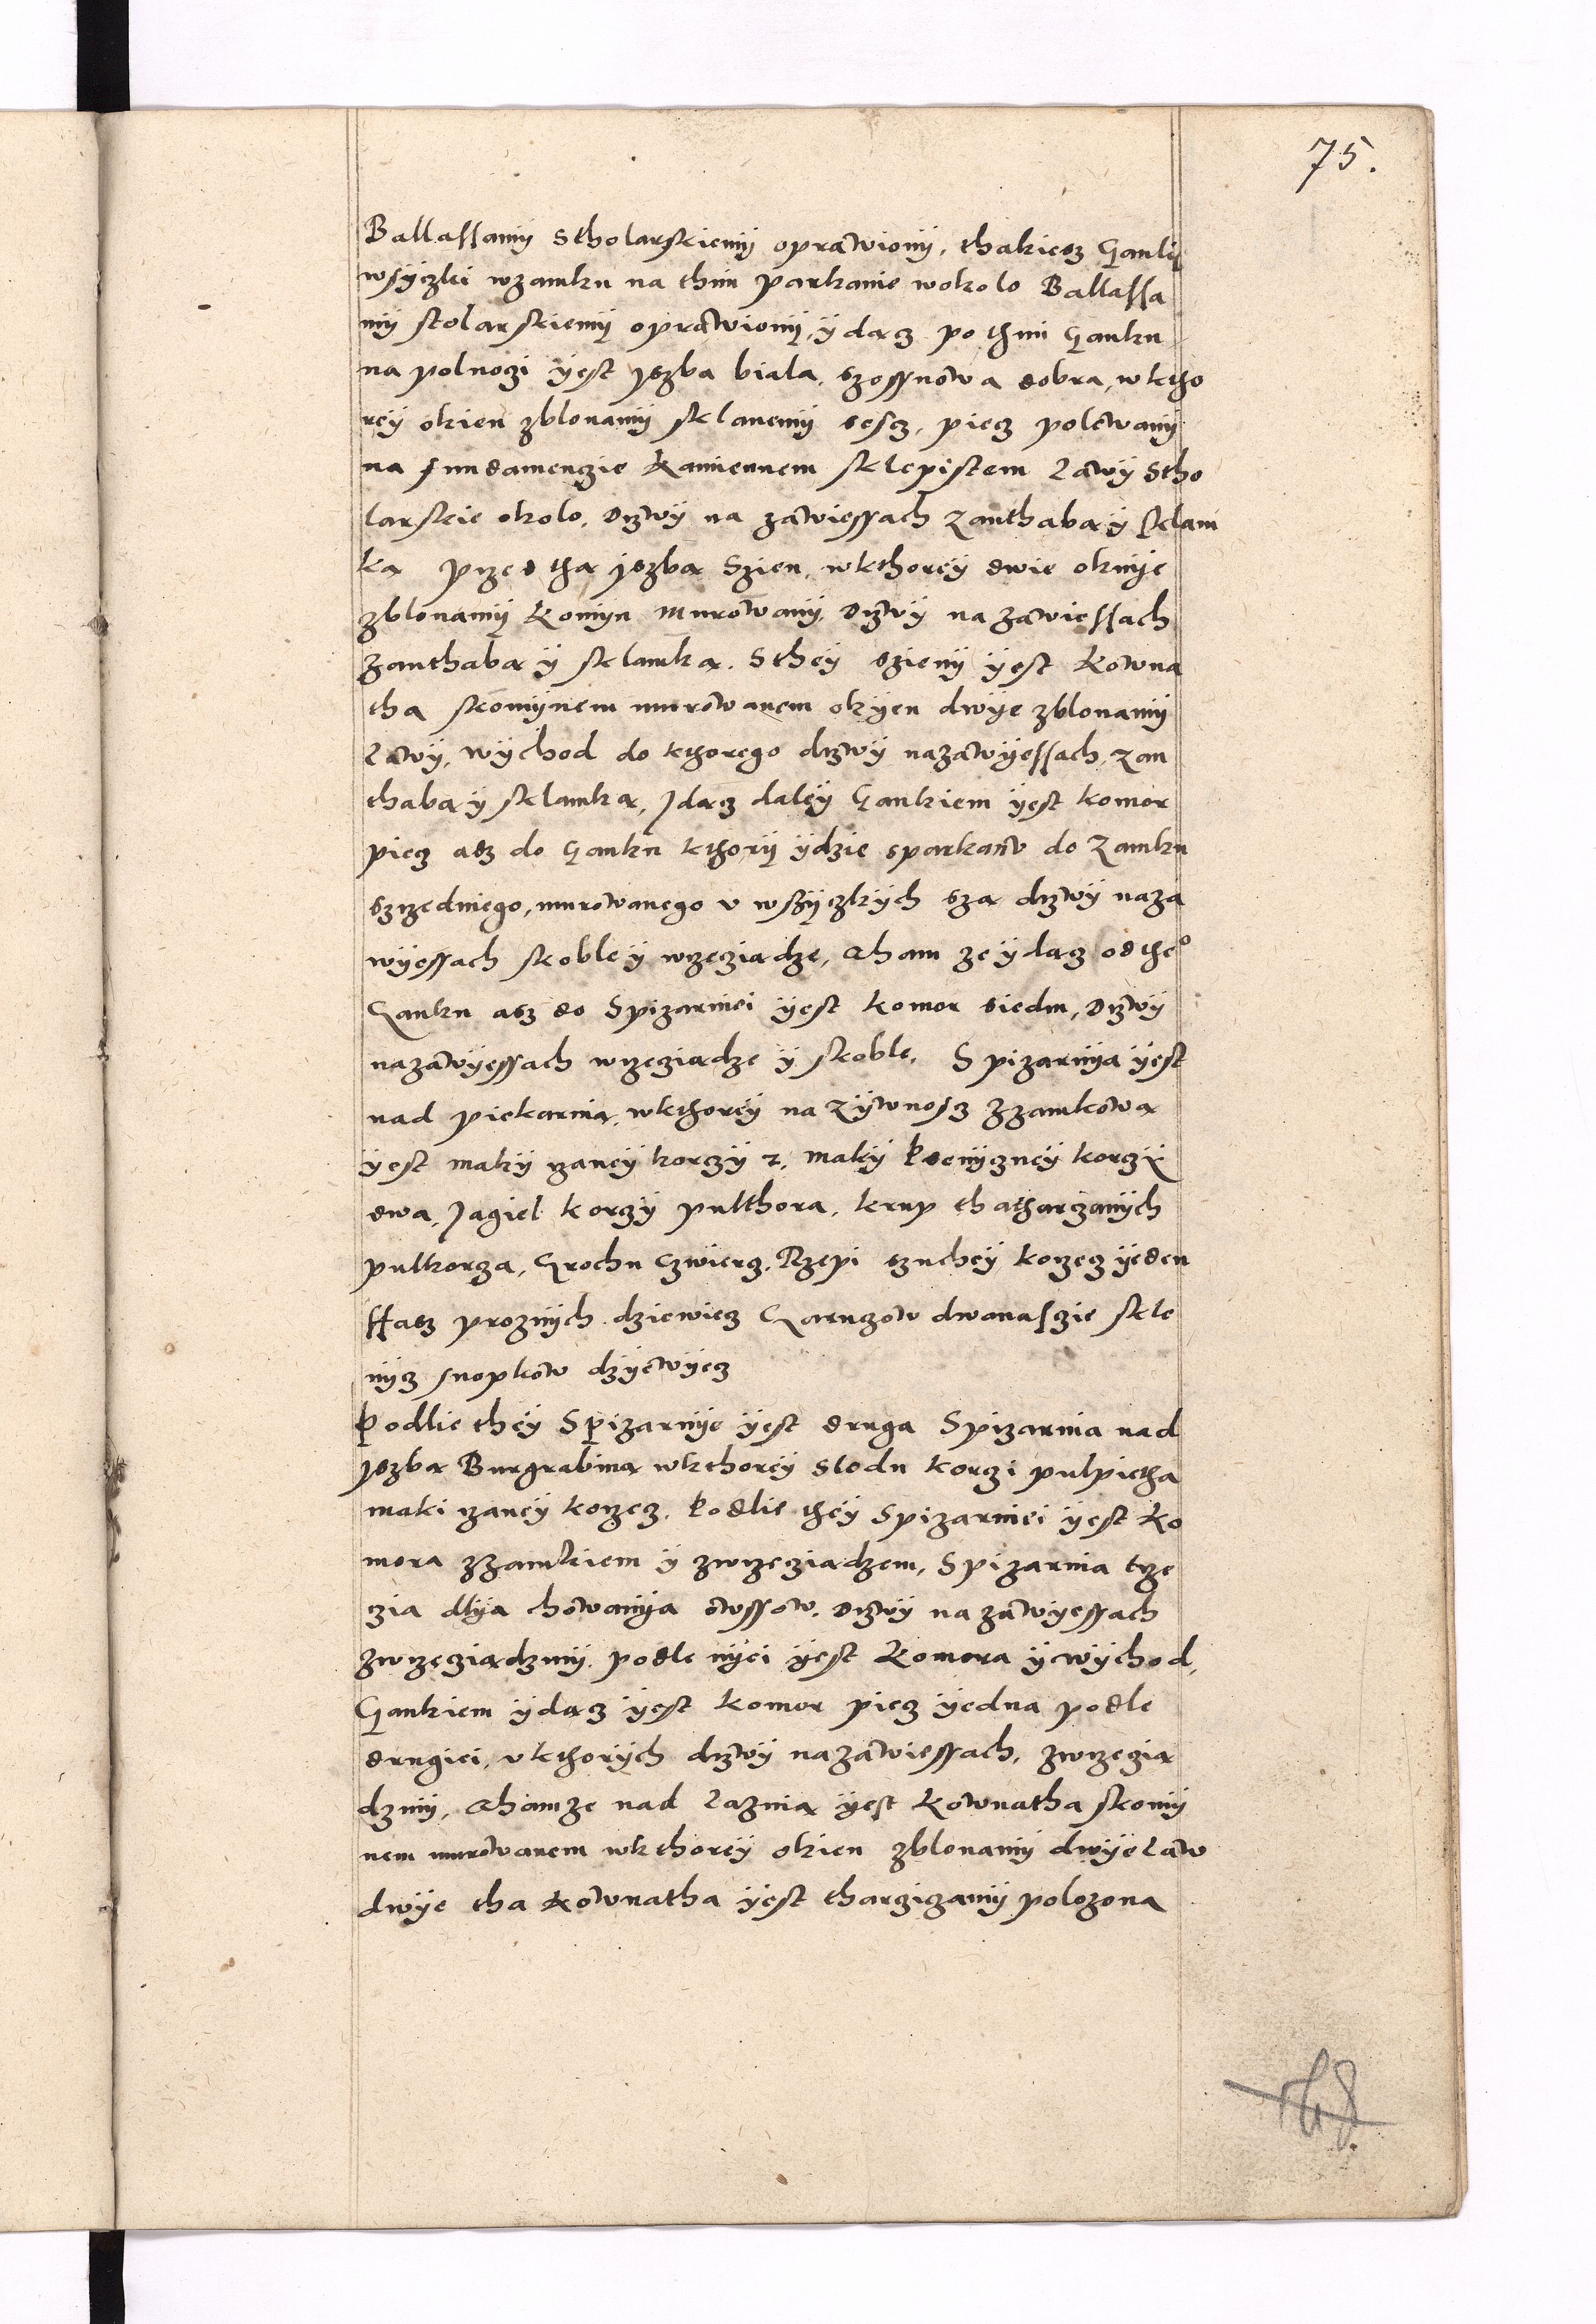 75.
Ballassamy Stholarskiemy oprawiony, thakiesz Ganki
wsyczki wzamku na thim parkanie wokolo Ballassa
my stolarskiemy oprawiony, y dącz po thim Ganku
na polnoczi yest yszba biala, szossnowa dobra, w ktho
rey okien zblonamy sklanemy sescz, piecz polewany
na fundamenczie Kamiennem sklepistem Lawy Stho
larskie okolo, Drzwy na zawiessach Zanthabą y sklam
ką przed thą yszbą Szien, wkthorey dwie oknye
zblonamy Komyn murowany, Drzwy na zawiessach
zanthabą y sklamką. Sthey szieny yest Kowna
tha skomynem murowanem okyen dwye zblonamy
Lawy, wychod do kthorego drzwy nazawyessach, zan
thabą y sklamką, Jdącz daley Gankiem yest komor
piecz asz do Ganku kthory ydzie sparkanv do Zamku
szrzedniego, murowanego v wszyczkych szą drzwy naza
wyessach skoble y wrzecziądze, Tham ze ydącz od the°
Ganku asz do Spizarniei yest komor siedm, Drzwy
nazawyessach wrzecziądze y skoble. Spizarnya yest
nad piekarnią, wkthorey na Zywnoscz Zzamkową
yest mąky rzaney korczy 2, mąky Psenyczney korczy
dwa, Jagiel korczy pulthora, krup thatharczanych
pulkorcza, Grochu czwiercz, Rzepi szuchey korzecz yeden
ffasz proznych dziewiecz Garnczow dwanasczie skle
nycz snopkow dzyewyecz
Podlie they Spizarnye yest druga Spizarnia nad
yszbą Burgrabina wkthorey slodu korczi pulpiętha
mąki rzaney korzecz. Podlie they Spizarniei yest ko
mora zzamkiem y zwrzecziądzem, Spizarnia trze
czia dlya chowanya owssow, Drzwy na zawyessach
zwrzecziądzmy, podle nyei yest Komora y wychod,
Gankiem ydącz yest komor piecz yedna podle
drugiei, v kthorych drzwy nazawiessach, zwrzeczią
dzmy, Thamze nad Laznią yest Kownatha skomy
nem murowanem wkthorey okien zblonamy dwye Law
dwye tha kownatha yest tharcziczamy polozona